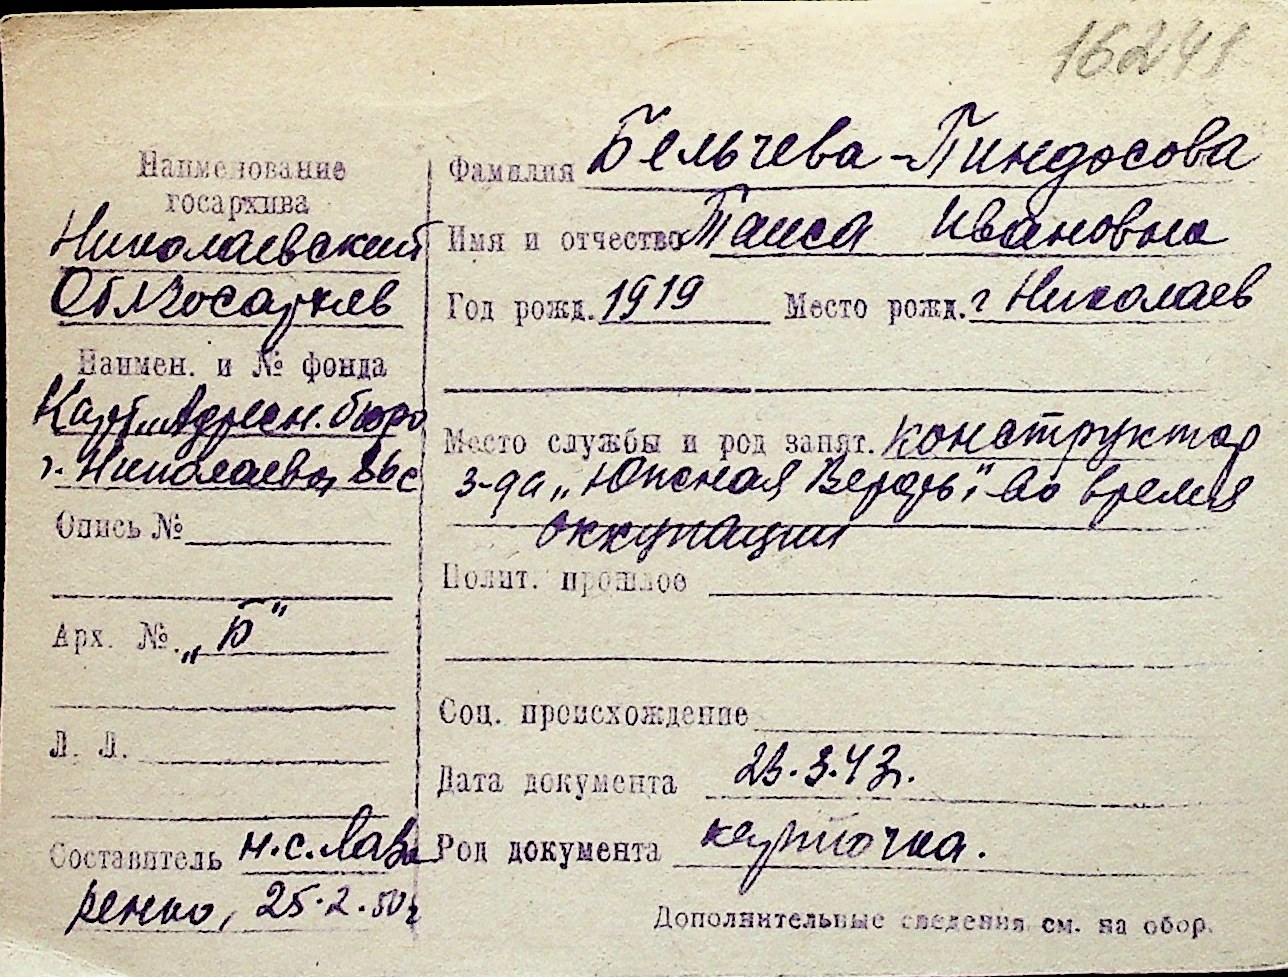 16241
Наименование
госархива
Николаевский
Облгосархив
Наимен. и № фонда
Карт. Адресн. бюро
г. Николаева
Опись №
Арх. №. „Б"
Л. Л.
Составитель н.с. Лав
ренко, 25.2.50г
Фамилия Бельчева-Пиндосова
Имя и отчество Таиса Ивановна
Год рожд. 1919 Место рожд. г Николаев
Место службы и род занят. конструктор
з-да „Южная Верфь"-во время
оккупации
Полит. прошлое
Соц. происхождение
Дата документа 23.3.43г.
Род документа карточка.
Дополнительные сведения см. на обор.